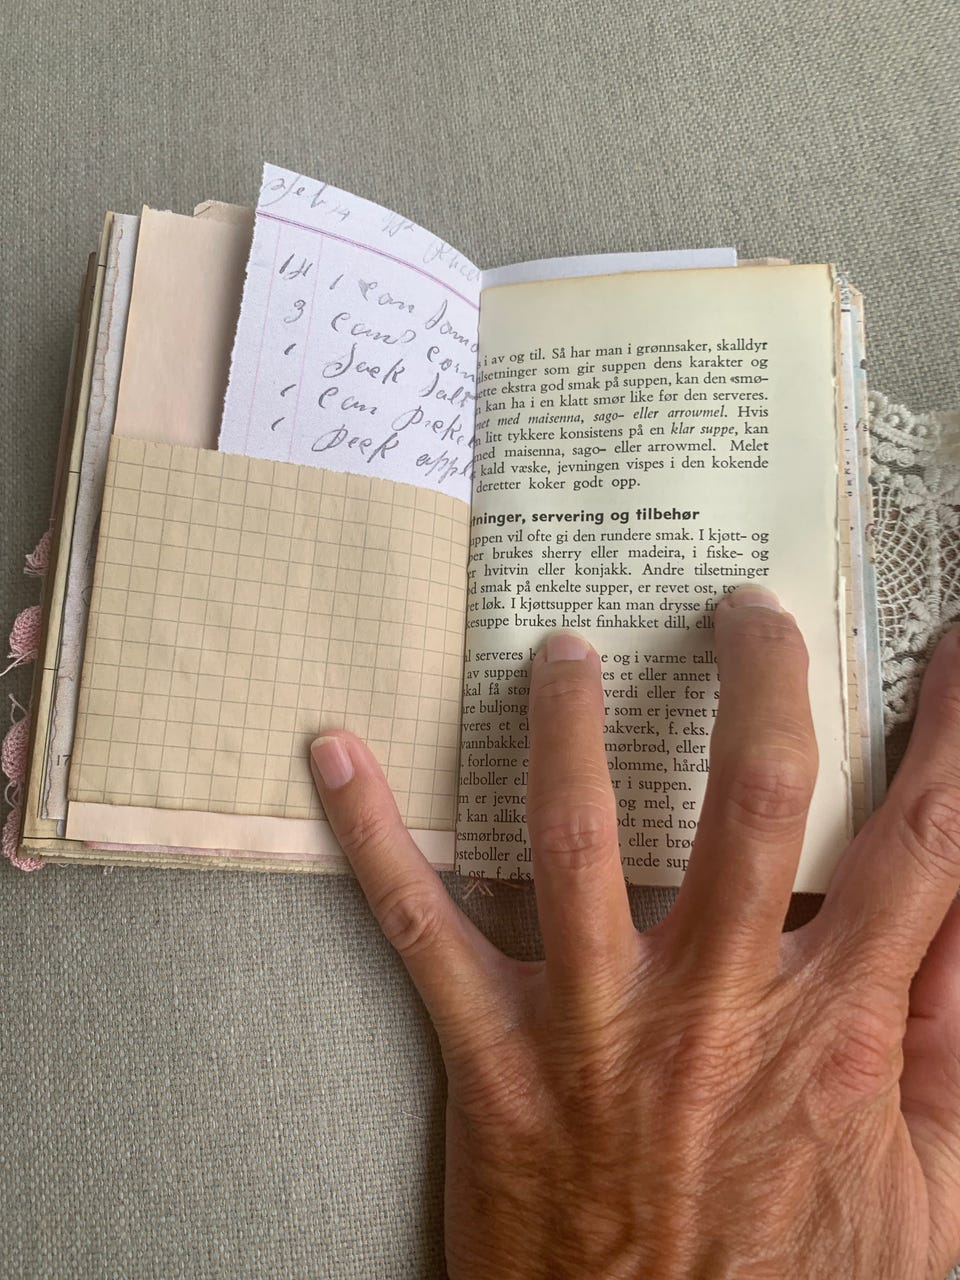 Feb 14
14 1 can
3 cans corn
1 Sack Salt
1 can
1 Peck
17
i av og til. Så har man i grønnsaker, skalldyr
ilsetninger som gir suppen dens karakter og
ette ekstra god smak på suppen, kan den «smø-
kan ha i en klatt smør like før den serveres.
net med maisenna, sago- eller arrowmel. Hvis
litt tykkere konsistens på en klar suppe, kan
med maisenna, sago- eller arrowmel. Melet
kald væske, jevningen vispes i den kokende
deretter koker godt opp.
tninger, servering og tilbehør
uppen vil ofte gi den rundere smak. I kjøtt- og
per brukes sherry eller madeira, i fiske- og
er hvitvin eller konjakk. Andre tilsetninger
d smak på enkelte supper, er revet ost,
et løk. I kjøttsupper kan man drysse
kesuppe brukes helst finhakket dill,
al serveres e og i varme
av suppen es et eller annet
skal få verdi eller for
re buljong r som er jevnet
veres et bakverk, f. eks.
vannbakkels mørbrød, eller
forlorne plomme,
elboller r i suppen.
m er jevne og mel, er
t kan allike odt med
esmørbrød, eller
osteboller vnede
ost, f. eks.